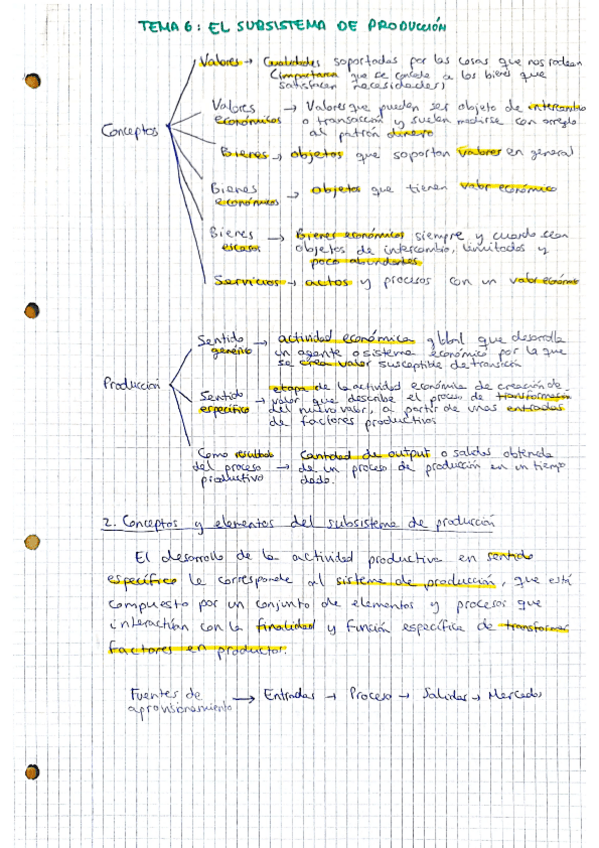 TEMA 6: EL SUBSISTEMA DE PRODUCCIÓN
Conceptos
Valores → Cualidades soportadas por las cosas que nos rodean
(importancia que se concede a los bienes que
satisfacen necesidades)
Valores económicos → Valores que pueden ser objeto de intercambio
o transacción y suelen medirse con arreglo
al patrón dinero
Bienes → objetos que soportan valores en general
Bienes económicos → objetos que tienen valor económico
Bienes escasos → Bienes económicos siempre y cuando sean
objetos de intercambio, limitados y
poco abundantes
Servicios → actos y procesos con un valor económico
Producción
Sentido genérico → actividad económica global que desarrolla
un agente o sistema económico por la que
se crea valor susceptible de transición
Sentido específico → etapa de la actividad económica de creación de
valor que describe el proceso de transformación
del nuevo valor, a partir de unas entradas
de factores productivos
Como resultado del proceso productivo → Cantidad de output o salidas obtenida
de un proceso de producción en un tiempo
dado.
2. Conceptos y elementos del subsistema de producción
El desarrollo de la actividad productiva en sentido
específico le corresponde al sistema de producción, que está
compuesto por un conjunto de elementos y procesos que
interactúan con la finalidad y función específica de transformar
factores en productos.
Fuentes de aprovisionamiento → Entradas → Proceso → Salidas → Mercados